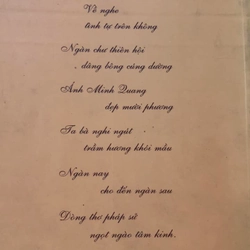 Về nghe
tình tự trên không
Ngàn chư thiên hội
, dâng bông cúng dường
Ánh Minh Quang
đẹp mười phương
Ta bà nghi ngút
trầm hương khói mầu
Ngàn nay
cho đến ngàn sau
Dòng thơ pháp sử
ngọt ngào tâm kinh.